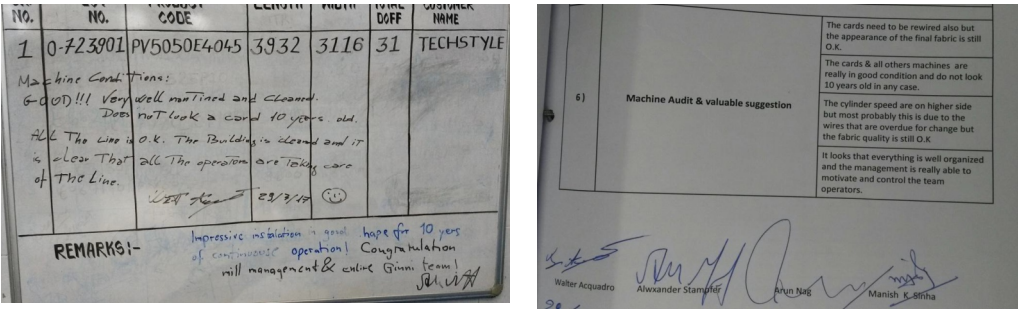 NO.
NO.
PRODUCT
CODE
LENGTH
WIDTH
TOTAL
DOFF
CUSTOMER
NAME
1 0-723901 PV5050E4045 3932 3116 31 TECHSTYLE
Machine Conditions:
GOOD!!! Very well mantined and Cleaned.
Does not look a card 10 years old.
ALL The Line is O.K. The Building is cleaned and it
is clear That all The operators are Taking care
of The Line.
29/3/17
REMARKS:-
Impressive instalation in good hape for 10 yers
of continuouse operation! Congratulation
mill management & entire Ginni team!
6)
Machine Audit & valuable suggestion
The cards need to be rewired also but
the appearance of the final fabric is still
O.K.
The cards & all others machines are
really in good condition and do not look
10 years old in any case.
The cylinder speed are on higher side
but most probably this is due to the
wires that are overdue for change but
the fabric quality is still O.K
It looks that everything is well organized
and the management is really able to
motivate and control the team
operators.
Walter Acquadro
Alwxander Stampfer
Arun Nag
Manish K Sinha